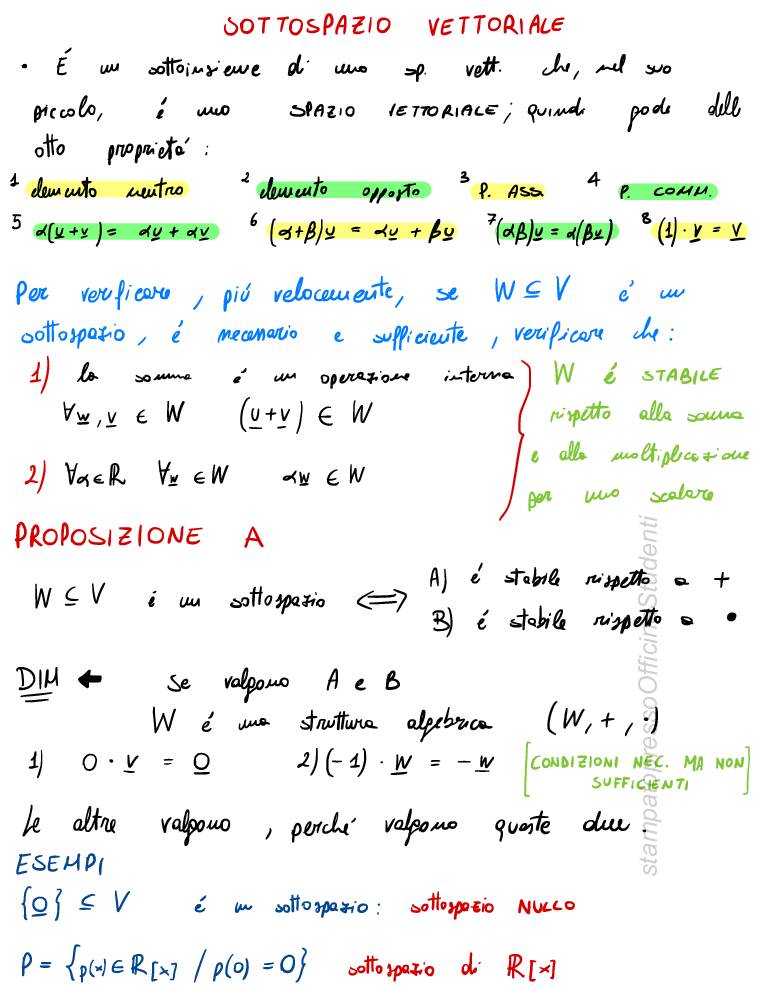 SOTTOSPAZIO VETTORIALE
• É un sottoinsieme di uno sp. vett. che, nel suo
piccolo, é uno SPAZIO VETTORIALE; quindi gode delle
otto proprietá:
1 elemento neutro 2 elemento opposto 3 P. ASS. 4 P. COMM.
5 α(u+v) = αu + αv 6 (α+β)u = αu + βu 7 (αβ)u = α(βu) 8 (1)·v = v
Per verificare, piú velocemente, se W ⊆ V é un
sottospazio, é necessario e sufficiente, verificare che:
1) la somma é un operazione interna
∀w,v ∈ W (u+v) ∈ W
2) ∀α∈R ∀w ∈ W αw ∈ W
W é STABILE
rispetto alla somma
e alla moltiplicazione
per uno scalare
PROPOSIZIONE A
W ⊆ V é un sottospazio ⟺ A) é stabile rispetto a +
B) é stabile rispetto a •
DIM ← Se valgono A e B
W é una struttura algebrica (W, +, ·)
1) 0 · v = 0 2) (-1) · w = -w [CONDIZIONI NEC. MA NON SUFFICIENTI]
Le altre valgono, perché valgono queste due.
ESEMPI
{0} ⊆ V é un sottospazio: sottospazio NULLO
P = {p(x) ∈ R[x] / p(0) = 0} sottospazio di R[x]
stampatopressoOfficinaStudenti